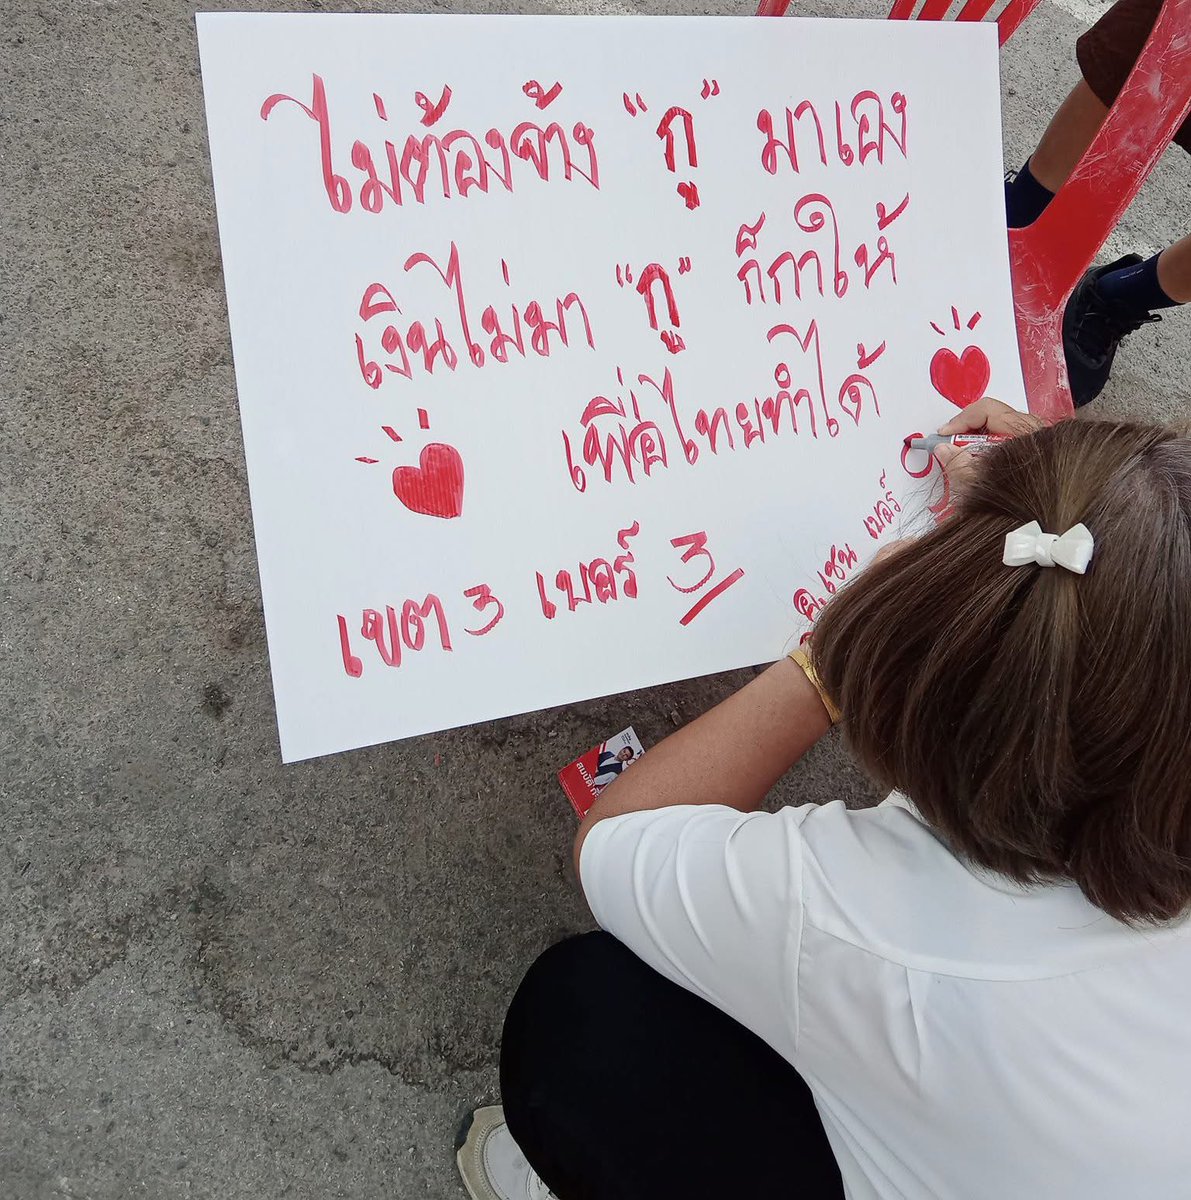 ไม่ต้องจ้าง "กู" มาเอง
เงินไม่มา "กู" ก็กาให้
เพื่อไทยทำได้
เขต 3 เบอร์ 3
อ.เชน เบอร์
สมบัติ